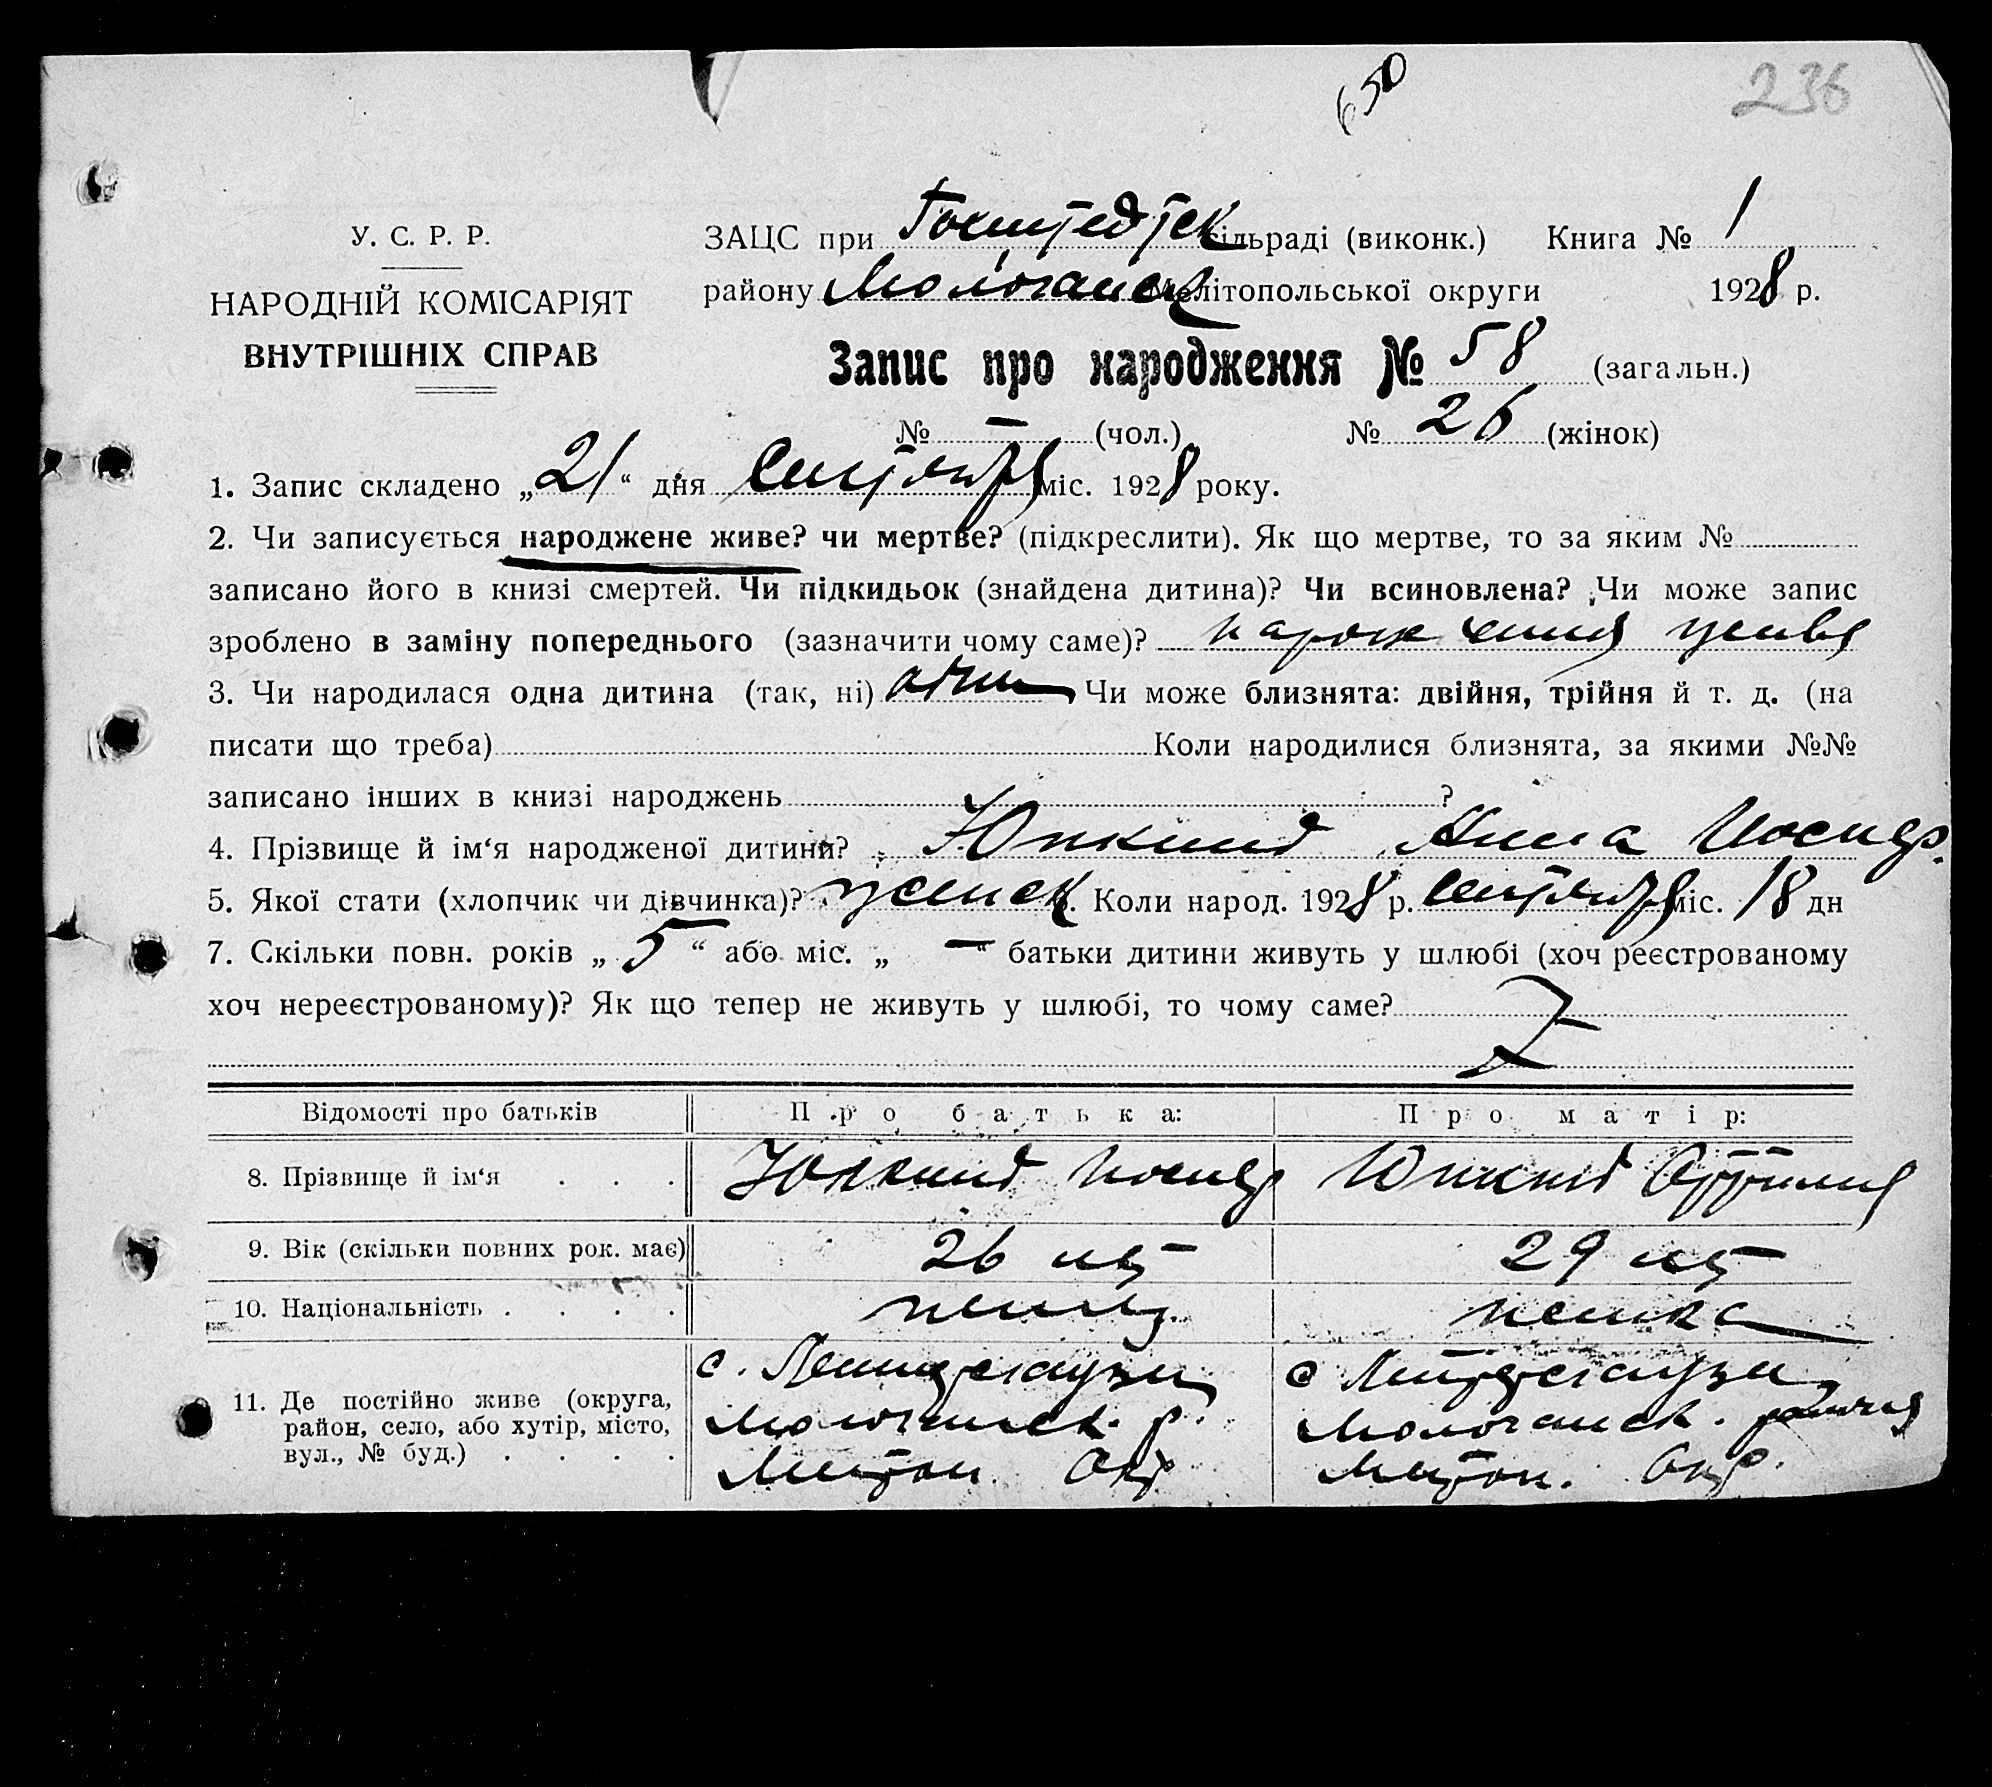 650
236
У. С. Р. Р.
НАРОДНІЙ КОМІСАРІЯТ
ВНУТРІШНІХ СПРАВ
ЗАЦС при Гохштедтск сільраді (виконк.) Книга № 1
району Молочанск Мелітопольської округи 1928 р.
Запис про народження № 58 (загальн.)
№ — (чол.) № 26 (жінок)
1. Запис складено „21“ дня Сентября міс. 1928 року.
2. Чи записується народжене живе? чи мертве? (підкреслити). Як що мертве, то за яким №
записано його в книзі смертей. Чи підкидьок (знайдена дитина)? Чи всиновлена? Чи може запис
зроблено в заміну попереднього (зазначити чому саме)?
3. Чи народилася одна дитина (так, ні) Чи може близнята: двійня, трійня й т. д. (на
писати що треба) Коли народилися близнята, за якими №№
записано інших в книзі народжень ?
4. Прізвище й ім‘я народженої дитини? Юнкинд Анна Иосиф.
5. Якої стати (хлопчик чи дівчинка)? женск. Коли народ. 1928 р. Сентября міс. 18 дн
7. Скільки повн. років „5“ або міс. „—“ батьки дитини живуть у шлюбі (хоч реєстрованому
хоч нереєстрованому)? Як що тепер не живуть у шлюбі, то чому саме?
Відомості про батьків Про батька: Про матір:
8. Прізвище й ім‘я . . . Юнкинд Иосиф Юнкинд Оттилия
9. Вік (скільки повних рок. має) 26 лет 29 лет
10. Національність . . . . немец. немка
11. Де постійно живе (округа, район, село, або хутір, місто, вул., № буд.) . . . .
с.
Молочанск. р.
Мелитоп. Окр
с
Молочанск. района
Мелитоп. Окр.